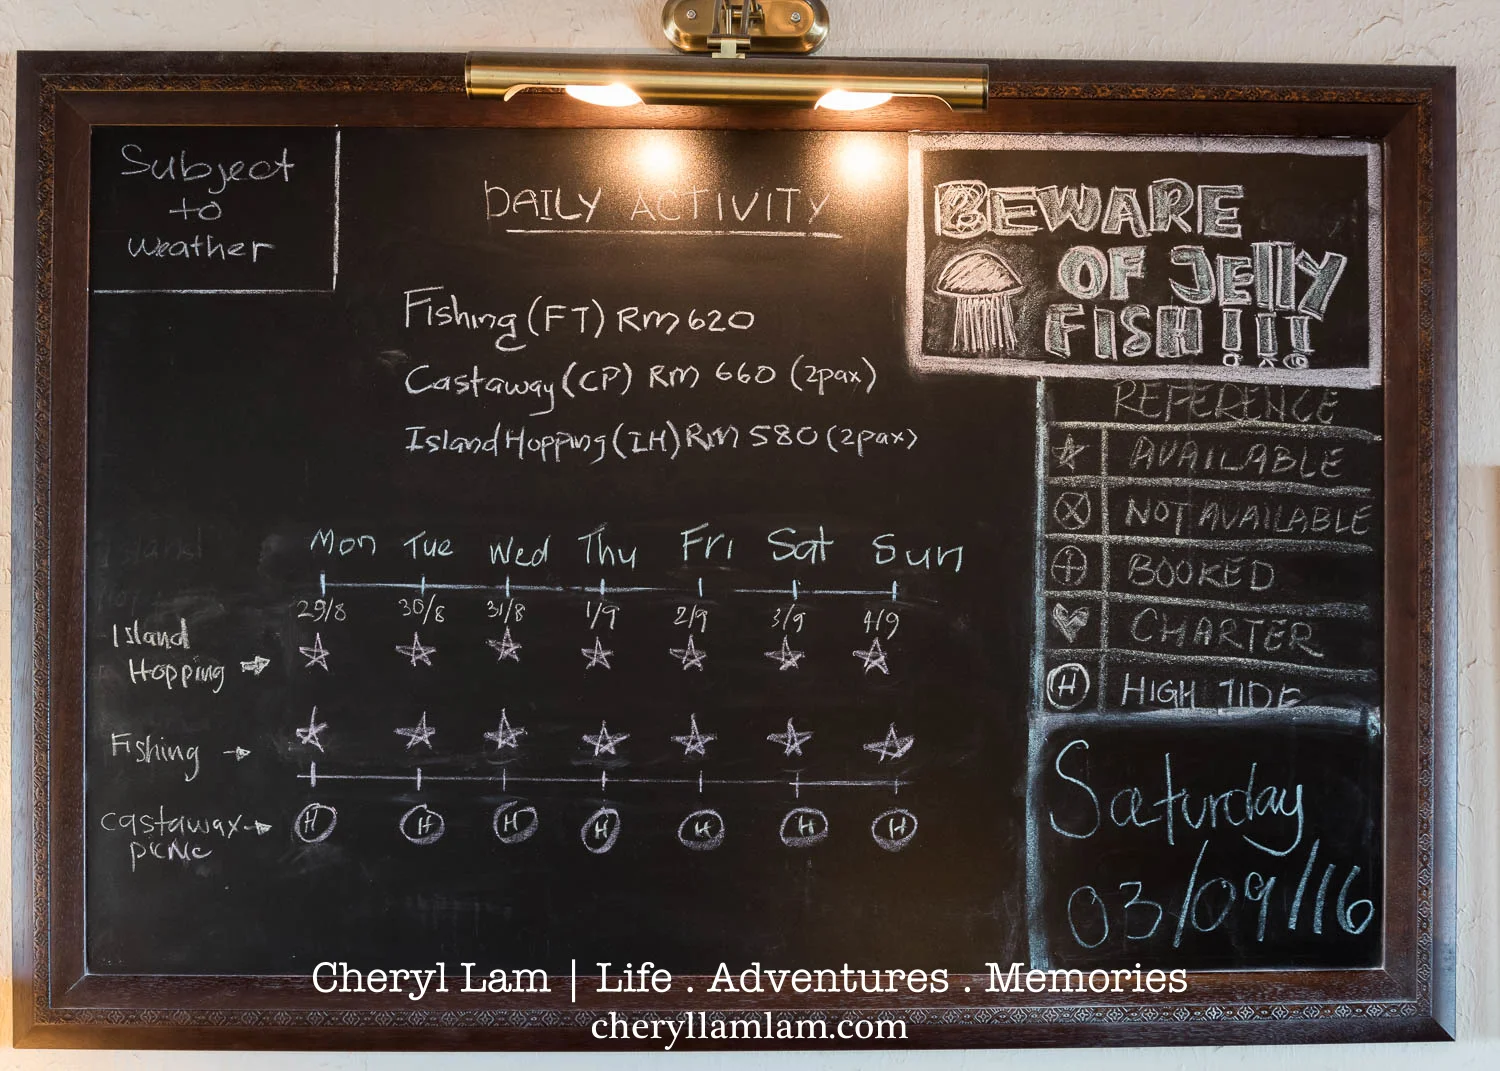 Subject
to
weather
DAILY ACTIVITY
Fishing (FT) RM 620
Castaway (CP) RM 660 (2pax)
Island Hopping (IH) RM 580 (2pax)
BEWARE
OF JELLY
FISH!!!
REFERENCE
AVAILABLE
NOT AVAILABLE
BOOKED
CHARTER
H HIGH TIDE
Mon Tue Wed Thu Fri Sat Sun
29/8 30/8 31/8 1/9 2/9 3/9 4/9
Island
Hopping
Fishing
castaway
picnic
H H H H H H H
Saturday
03/09/16
Cheryl Lam | Life . Adventures . Memories
cheryllamlam.com